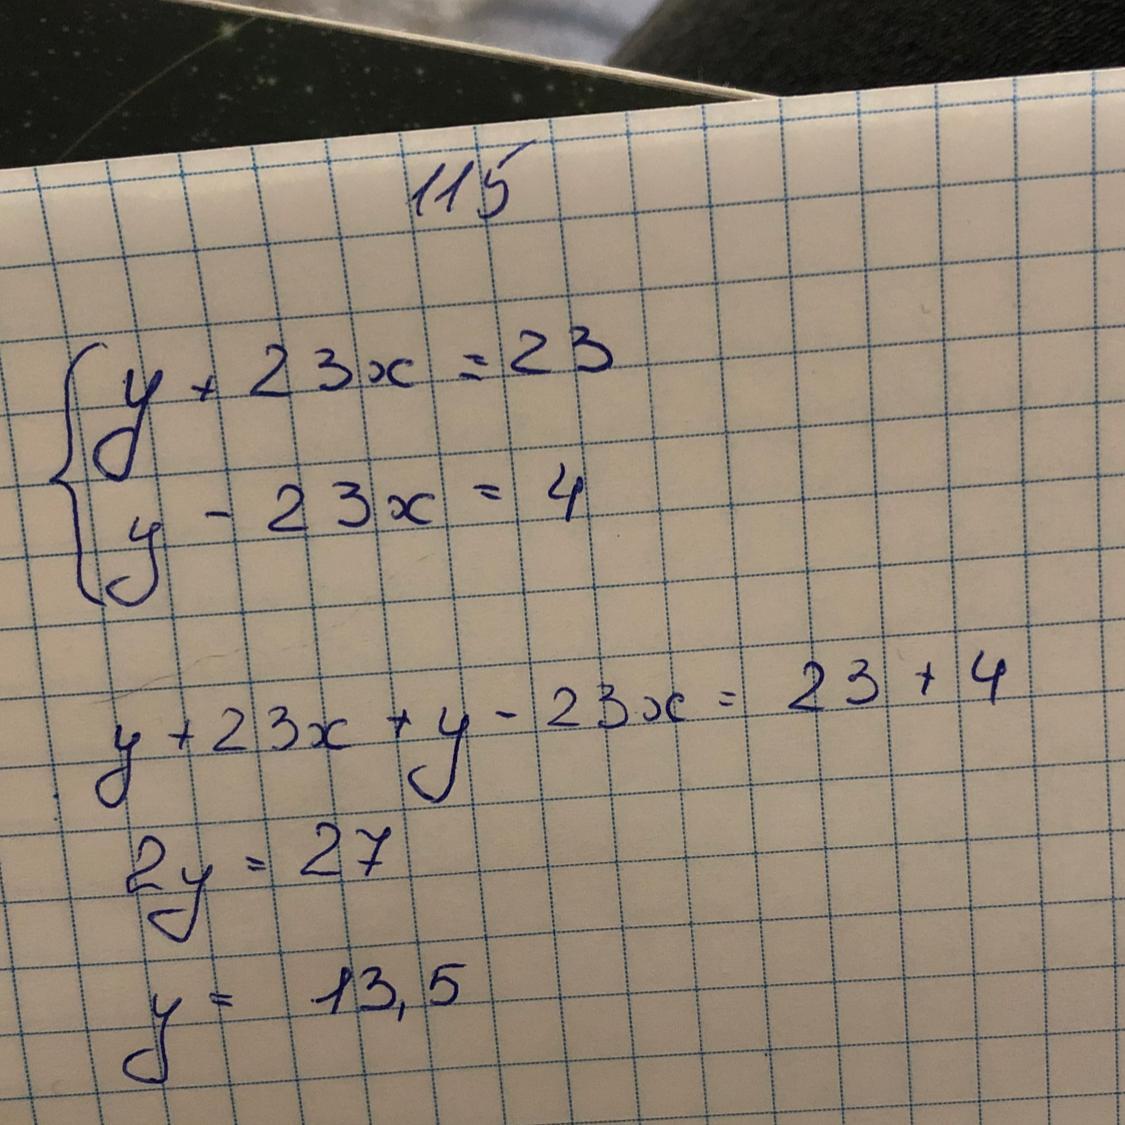 115
y + 23x = 23
y - 23x = 4
y + 23x + y - 23x = 23 + 4
2y = 27
y = 13,5